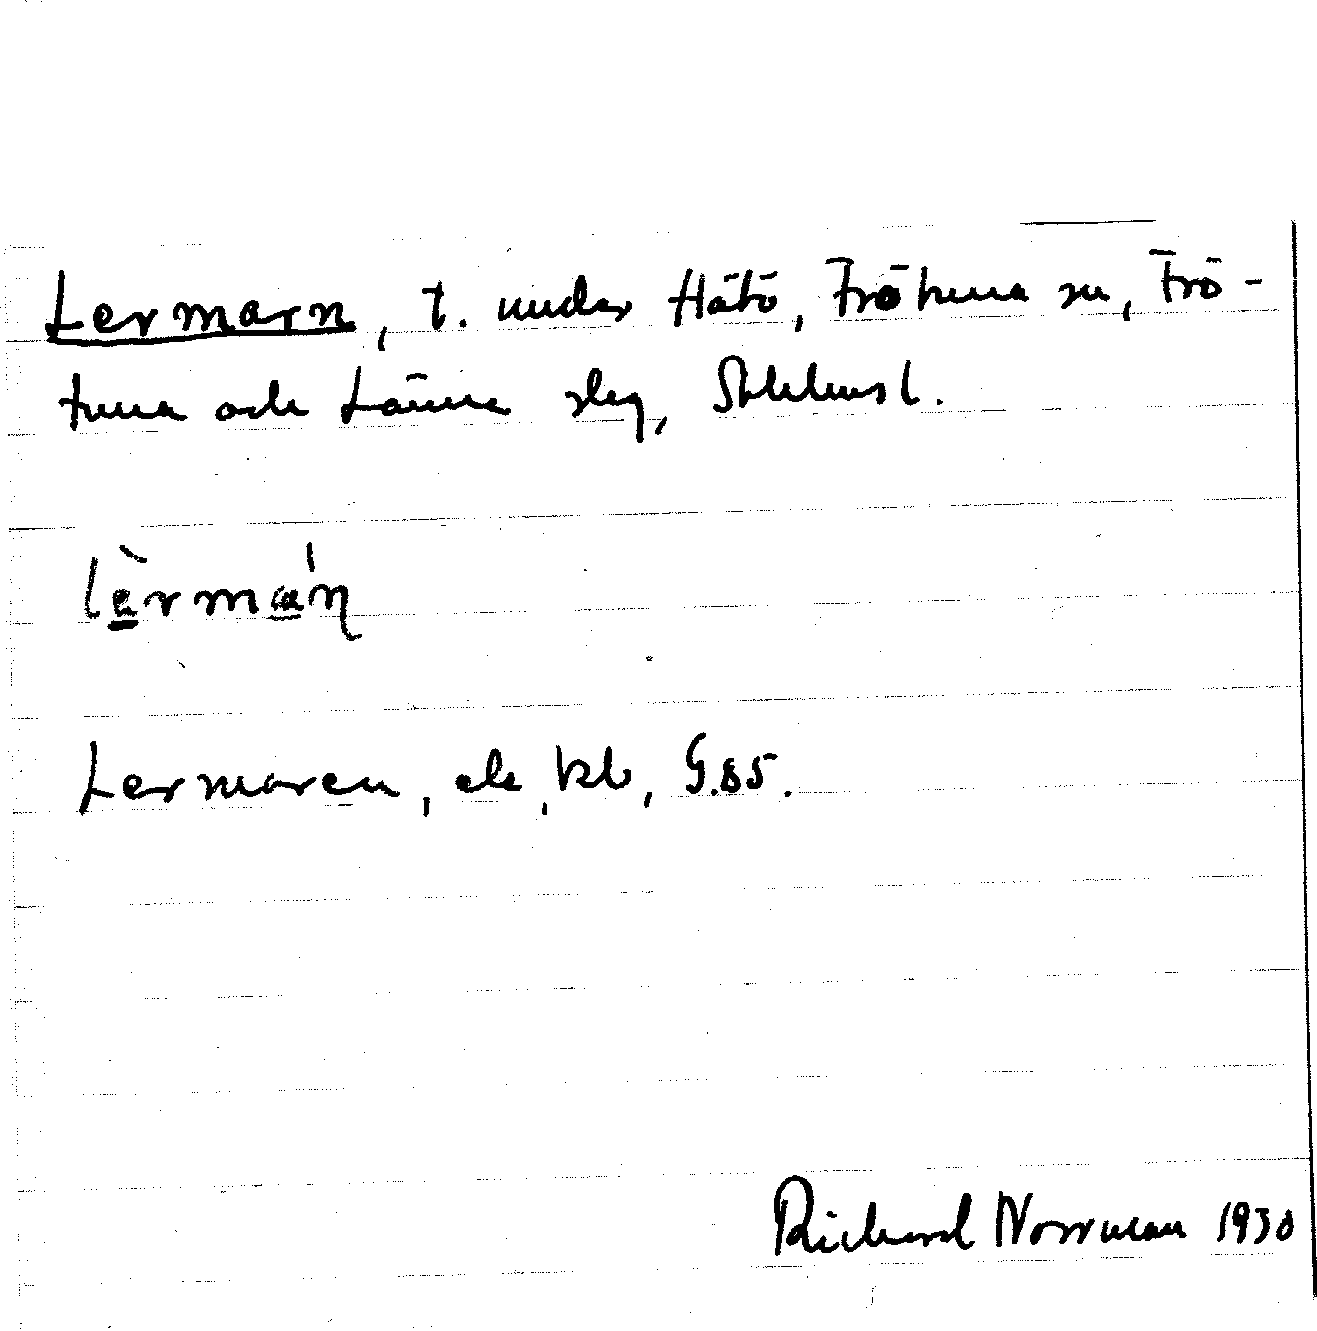 Lermarn, t. under Håtö, Frötuna sn, Frö-
tuna och Länna slg, Stockhusl.
lèrman
Lermaren, ek, kb, G.85.
Richard Norrman 1930